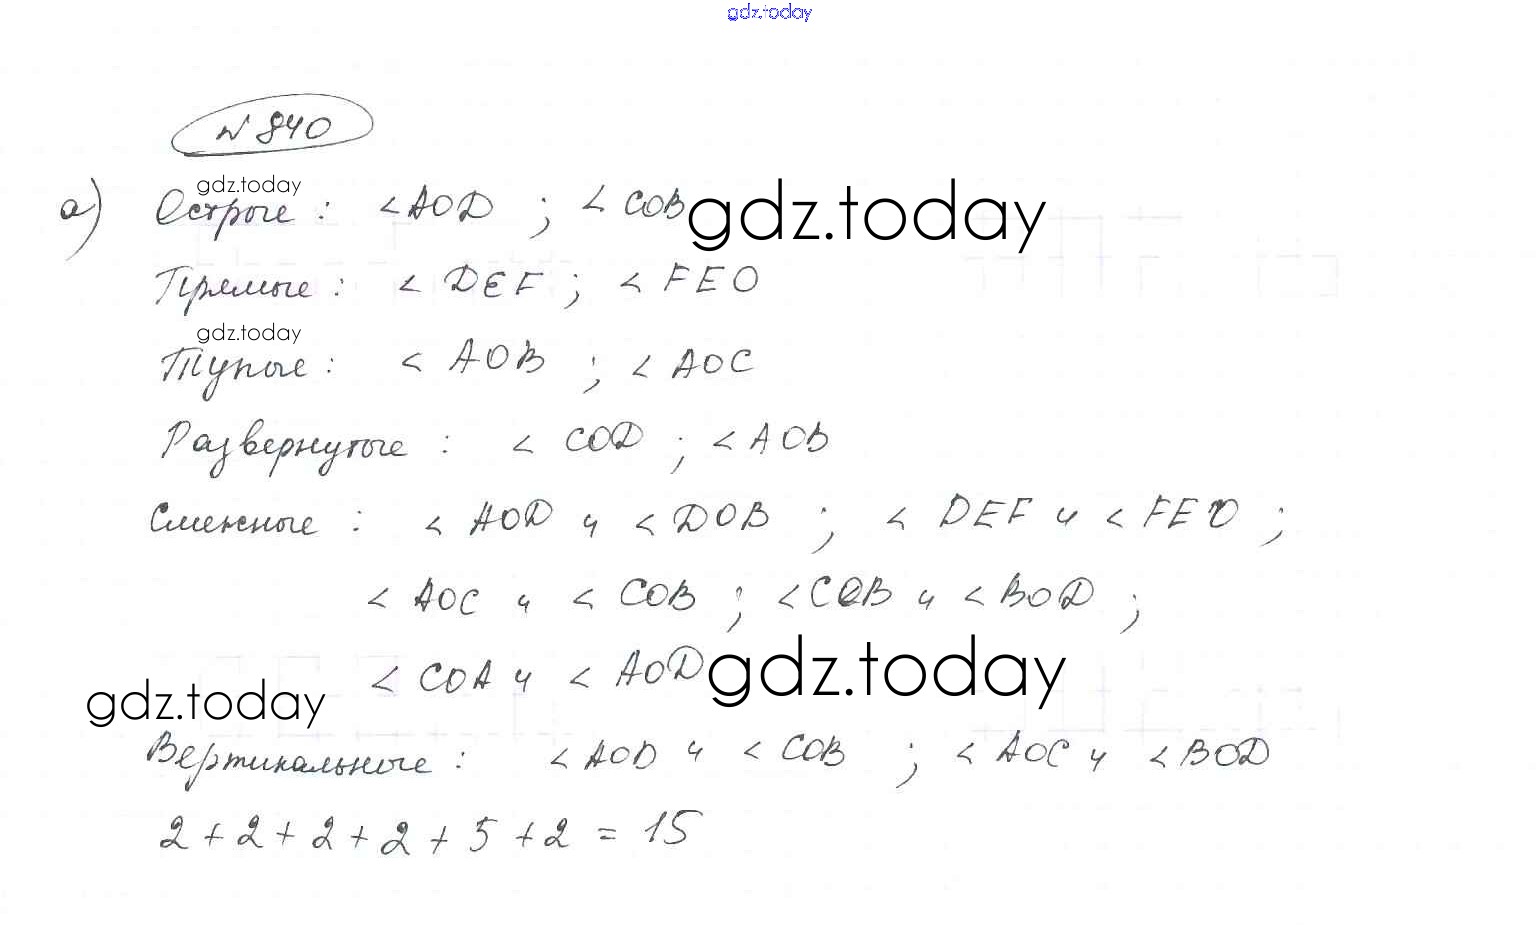 gdz.today
№ 840
gdz.today
а) Острые : <AOD ; < COB
gdz.today
Прямые : < DEF ; < FEO
gdz.today
Тупые : < AOB ; < AOC
Развернутые : < COD ; < AOB
Смежные : < AOD и < DOB ; < DEF и < FEO ;
< AOC и < COB ; <COB и < BOD ;
< COA и < AOD
gdz.today
gdz.today
Вертикальные : < AOD и < COB ; < AOC и < BOD
2 + 2 + 2 + 2 + 5 + 2 = 15